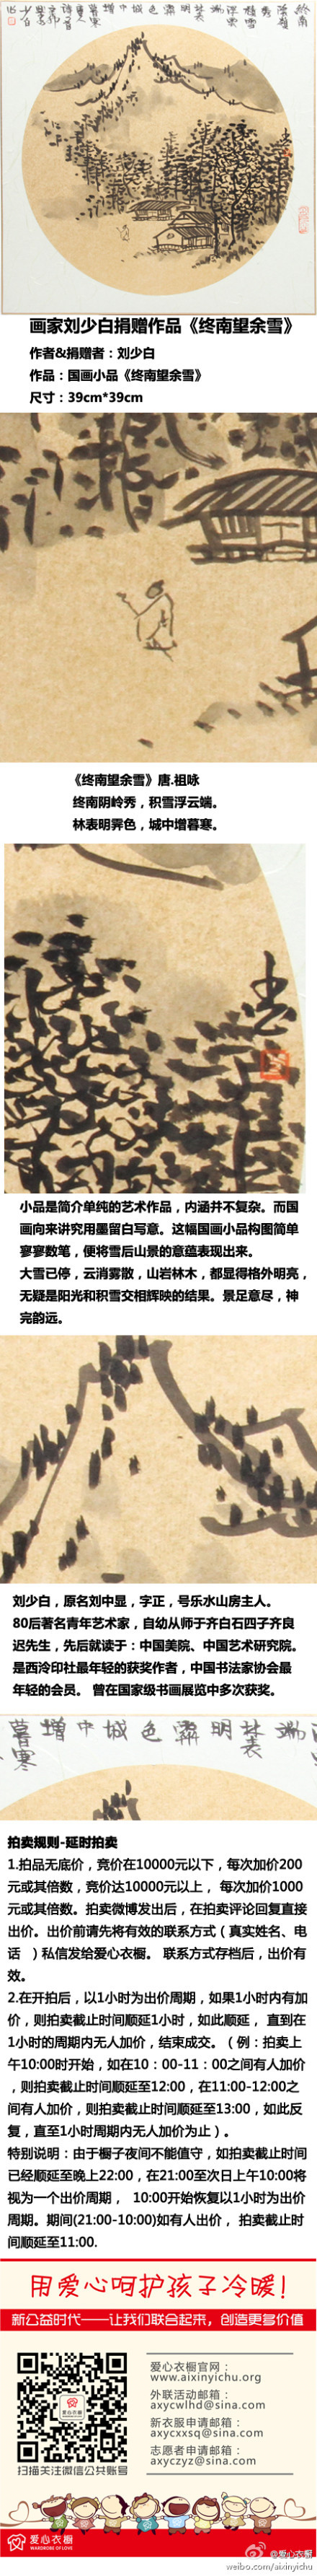 终南阴岭秀积雪浮云端林表明霁色城中增暮寒
画家刘少白捐赠作品《终南望余雪》
作者&捐赠者：刘少白
作品：国画小品《终南望余雪》
尺寸：39cm*39cm
《终南望余雪》唐.祖咏
终南阴岭秀，积雪浮云端。
林表明霁色，城中增暮寒。
小品是简介单纯的艺术作品，内涵并不复杂。而国
画向来讲究用墨留白写意。这幅国画小品构图简单
寥寥数笔，便将雪后山景的意蕴表现出来。
大雪已停，云消雾散，山岩林木，都显得格外明亮，
无疑是阳光和积雪交相辉映的结果。景足意尽，神
完韵远。
刘少白，原名刘中显，字正，号乐水山房主人。
80后著名青年艺术家，自幼从师于齐白石四子齐良
迟先生，先后就读于：中国美院、中国艺术研究院。
是西泠印社最年轻的获奖作者，中国书法家协会最
年轻的会员。 曾在国家级书画展览中多次获奖。
暮寒 增 中 城 色 霁 明 林表 端
拍卖规则-延时拍卖
1.拍品无底价，竞价在10000元以下，每次加价200
元或其倍数，竞价达10000元以上， 每次加价1000
元或其倍数。拍卖微博发出后，在拍卖评论回复直接
出价。出价前请先将有效的联系方式（真实姓名、电
话 ）私信发给爱心衣橱。 联系方式存档后，出价有
效。
2.在开拍后，以1小时为出价周期，如果1小时内有加
价，则拍卖截止时间顺延1小时，如此顺延， 直到在
1小时的周期内无人加价，结束成交。（ 例：拍卖上
午10:00时开始，如在10：00-11：00之间有人加价
，则拍卖截止时间顺延至12:00，在11:00-12:00之
间有人加价，则拍卖截止时间顺延至13:00，如此反
复，直至1小时周期内无人加价为止）。
特别说明：由于橱子夜间不能值守，如拍卖截止时间
已经顺延至晚上22:00，在21:00至次日上午10:00将
视为一个出价周期， 10:00开始恢复以1小时为出价
周期。期间(21:00-10:00)如有人出价， 拍卖截止时
间顺延至11:00.
用爱心呵护孩子冷暖！
新公益时代——让我们联合起来，创造更多价值
爱心衣橱官网：
www.aixinyichu.org
外联活动邮箱：
axycwlhd@sina.com
新衣服申请邮箱：
axycxxsq@sina.com
志愿者申请邮箱：
axyczyz@sina.com
扫描关注微信公共账号
爱心衣橱
WARDROBE OF LOVE
@爱心衣橱
weibo.com/aixinyichu